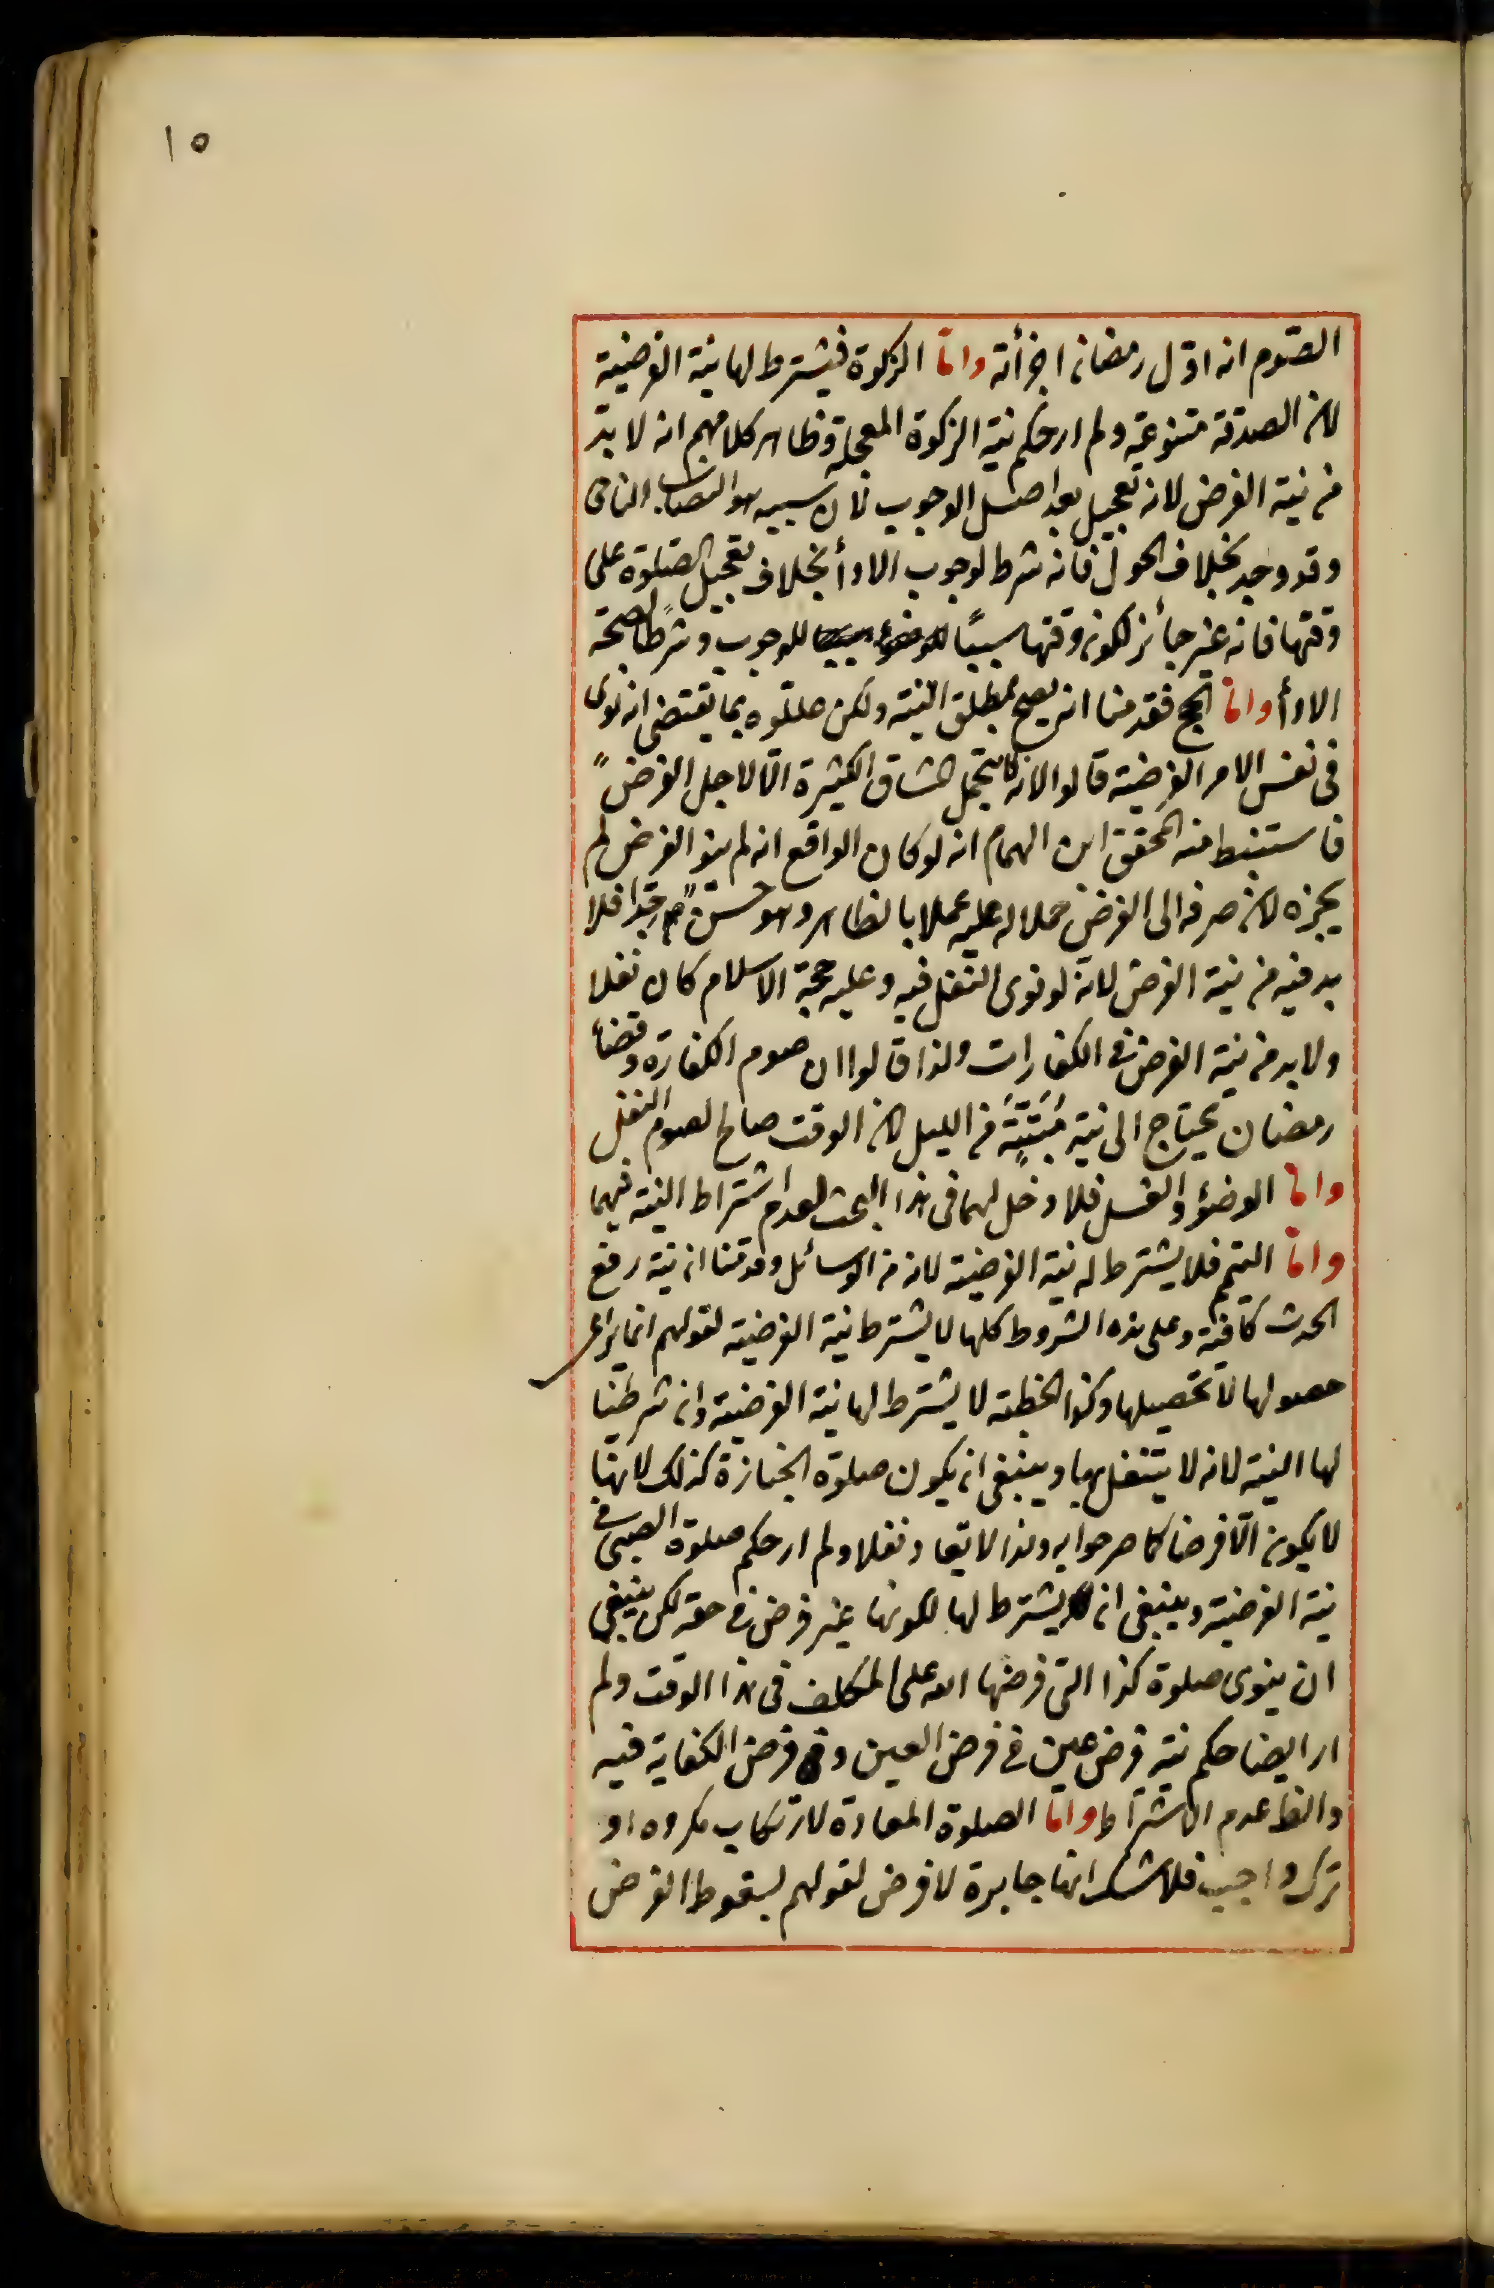 ١٥
الصّوم انه اوّل رمضان اجزأته وامّا الزكوة فيشترط لها نية الفرضية
لان الصدقة متنوعة ولم ار حكم نية الزكوة المعجلة وظاهر كلامهم انه لا بدّ
من نية الفرض لانه تعجيل بعد اصل الوجوب لان سببه هو النصاب النامى
وقد وجد بخلاف الحول فانه شرط لوجوب الاداء بخلاف تعجيل الصّلوة على
وقتها فانه غير جائز لكون وقتها سببًا للوجوب وشرطًا لصحة
الاداء وامّا الحج فقدمنا انه يصح بمطلق النيّة ولكن عللوه بما يقتضى انه نوى
فى نفس الامر الفرضية قالوا لانه لا يتحمل المشاق الكثيرة الّا لاجل الفرض
فاستنبط منه المحقق ابن الهمام انه لو كان الواقع انه لم ينو الفرض لم
يجزه لان صرفه الى الفرض حملا له عليه عملا بالظاهر وهو حسنٌ جدا فلا
بد فيه من نية الفرض لانه لو نوى النّفل فيه وعليه حجة الاسلام كان نفلا
ولا بد من نية الفرض فى الكفارات ولذا قالوا ان صوم الكفارة وقضاء
رمضان يحتاج الى نية مُبَيَّتَةٍ من الليل لان الوقت صالح لصوم النفل
وامّا الوضؤ والغسل فلا دخل لهما فى هذا البحث لعدم اشتراط النية فيهما
وامّا التيمم فلا يشترط له نية الفرضية لانه من الوسائل وقدمنا ان نية رفع
الحدث كافية وعلى هذه الشروط كلها لا يشترط نية الفرضية لقولهم انما يراعى
حصولها لا تحصيلها وكذا الخطبة لا يشترط لها نية الفرضية وان شرطنا
لها النية لانه لا يتنفل بها وينبغى ان يكون صلوة الجنازة كذلك لانها
لا يكون الّا فرضا كما صرحوا به ولذا لا تعاد نفلا ولم ار حكم صلوة الصبى فى
نية الفرضية وينبغى ان لا يشترط لها لكونها غير فرض فى حقه لكن ينبغى
ان ينوى صلوة كذا التى فرضها الله على المكلف فى هذا الوقت ولم
ار ايضا حكم نية فرض عين فى فرض العين وفى فرض الكفاية فيه
والظ عدم الاشتراط وامّا الصلوة المعادة لارتكاب مكروه او
ترك واجب فلا شك انها جابرة لا فرض لقولهم بسقوط الفرض